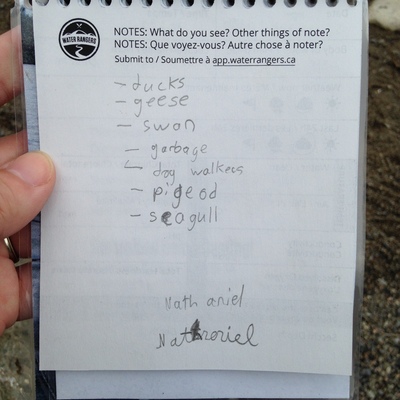 WATER RANGERS
NOTES: What do you see? Other things of note?
NOTES: Que voyez-vous? Autre chose à noter?
Submit to / Soumettre à app.waterrangers.ca
- ducks
- geese
- swan
- garbage
- dog walkers
- pigeod
- seagull
Nathaniel